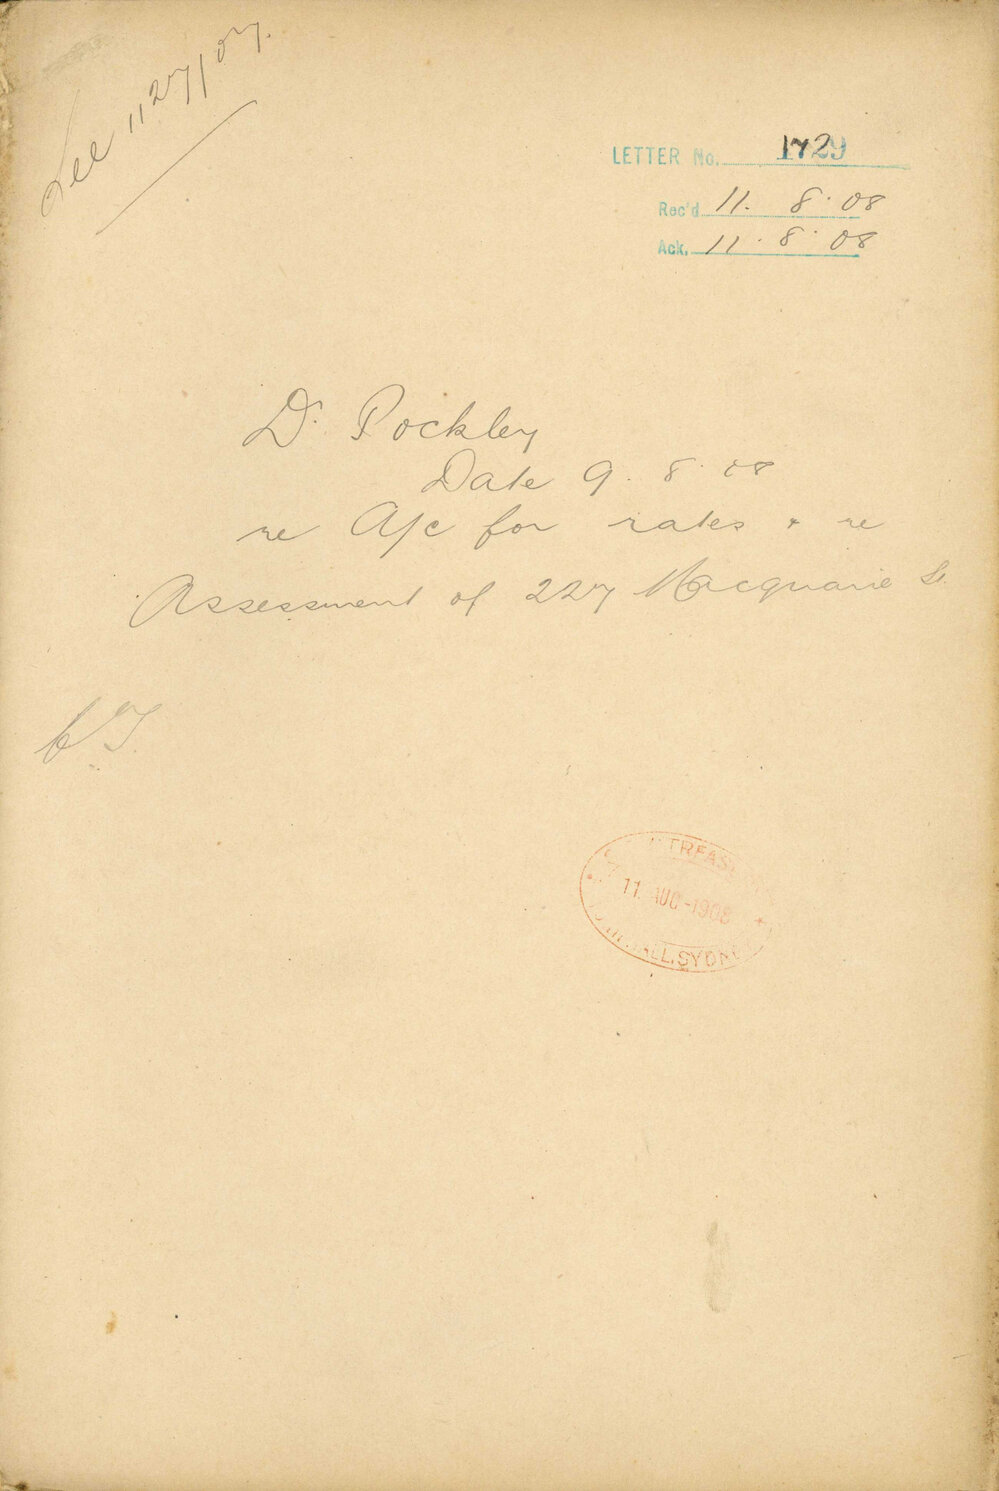 See 1127/07.
LETTER No. 1729
Rec'd 11. 8. 08
Ack. 11. 8. 08
Dr. Pockley
Date 9. 8. 08
re A/c for rates & re
Assessment of 227 Macquarie St.
TREAS
11 AUG -1908
ALL, SYDNEY